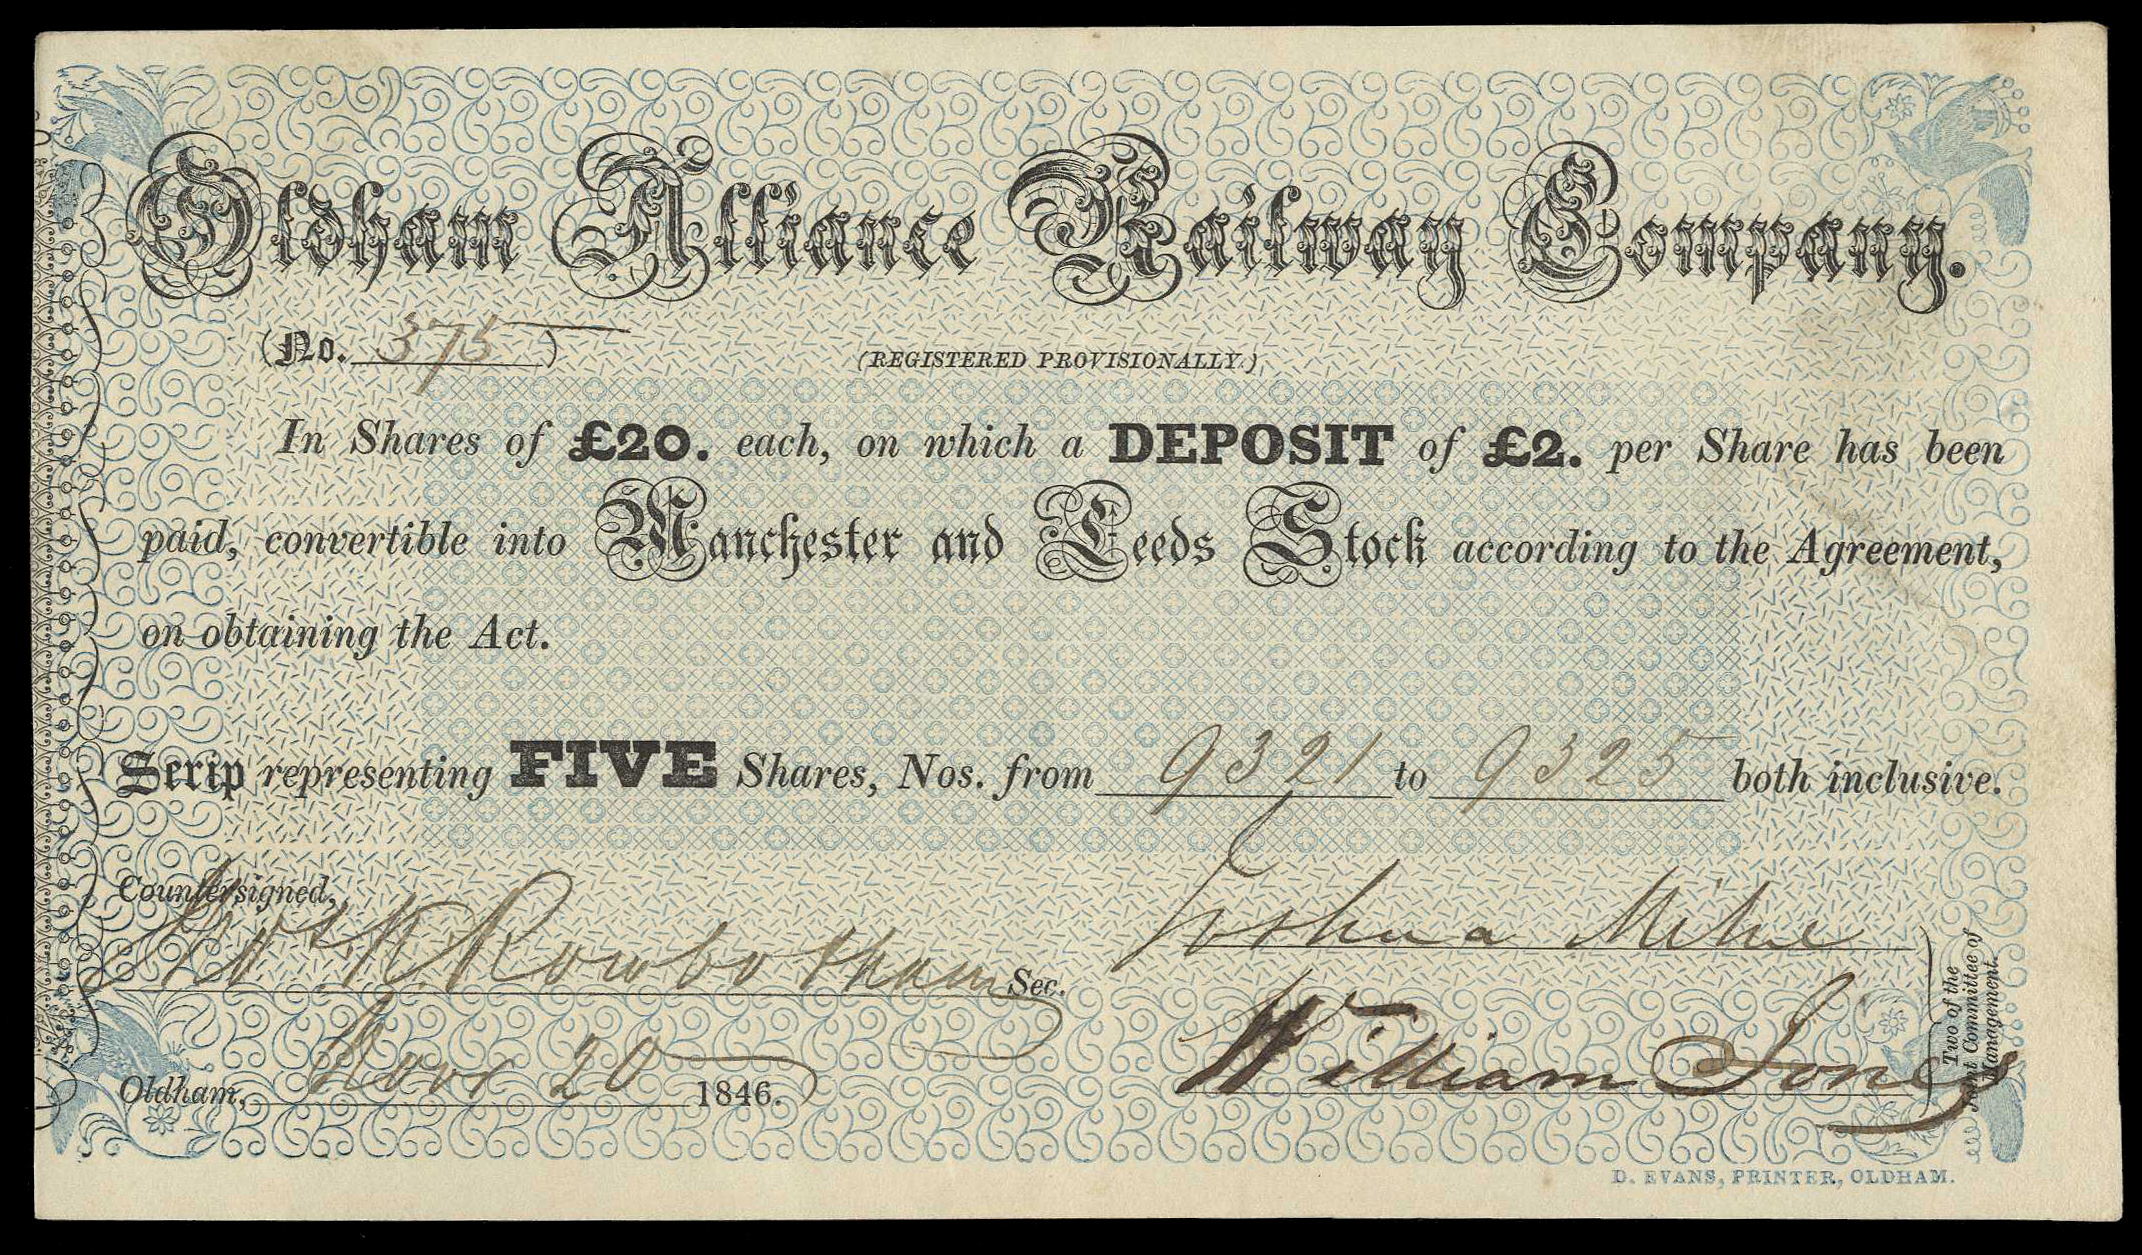 Oldham Alliance Railway Company.
(No. 375)
(REGISTERED PROVISIONALLY.)
In Shares of £20. each, on which a DEPOSIT of £2. per Share has been
paid, convertible into Manchester and Leeds Stock according to the Agreement,
on obtaining the Act.
Scrip representing FIVE Shares, Nos. from 9321 to 9325 both inclusive.
Countersigned,
Rowbotham Sec.
Joshua Milne
William Jones
Two of the
Joint Committee of
Management.
Oldham, Novr 20 1846.
D. EVANS, PRINTER, OLDHAM.